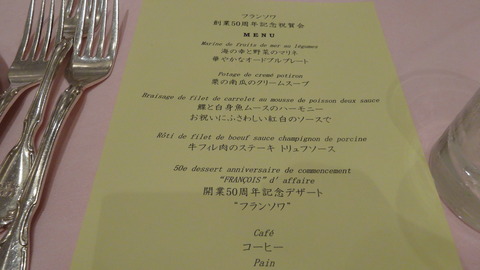 フランソワ
創業50周年記念祝賀会
MENU
Marine de fruits de mer au légumes
海の幸と野菜のマリネ
華やかなオードブルプレート
Potage de creme potiron
栗の南瓜のクリームスープ
Braisage de filet de carrelet au mousse de poisson deux sauce
鰈と白身魚ムースのハーモニー
お祝いにふさわしい紅白のソースで
Rôti de filet de boeuf sauce champignon de porcine
牛フィレ肉のステーキ トリュフソース
50e dessert anniversaire de commencement
"FRANÇOIS" d' affaire
開業50周年記念デザート
"フランソワ"
Café
コーヒー
Pain